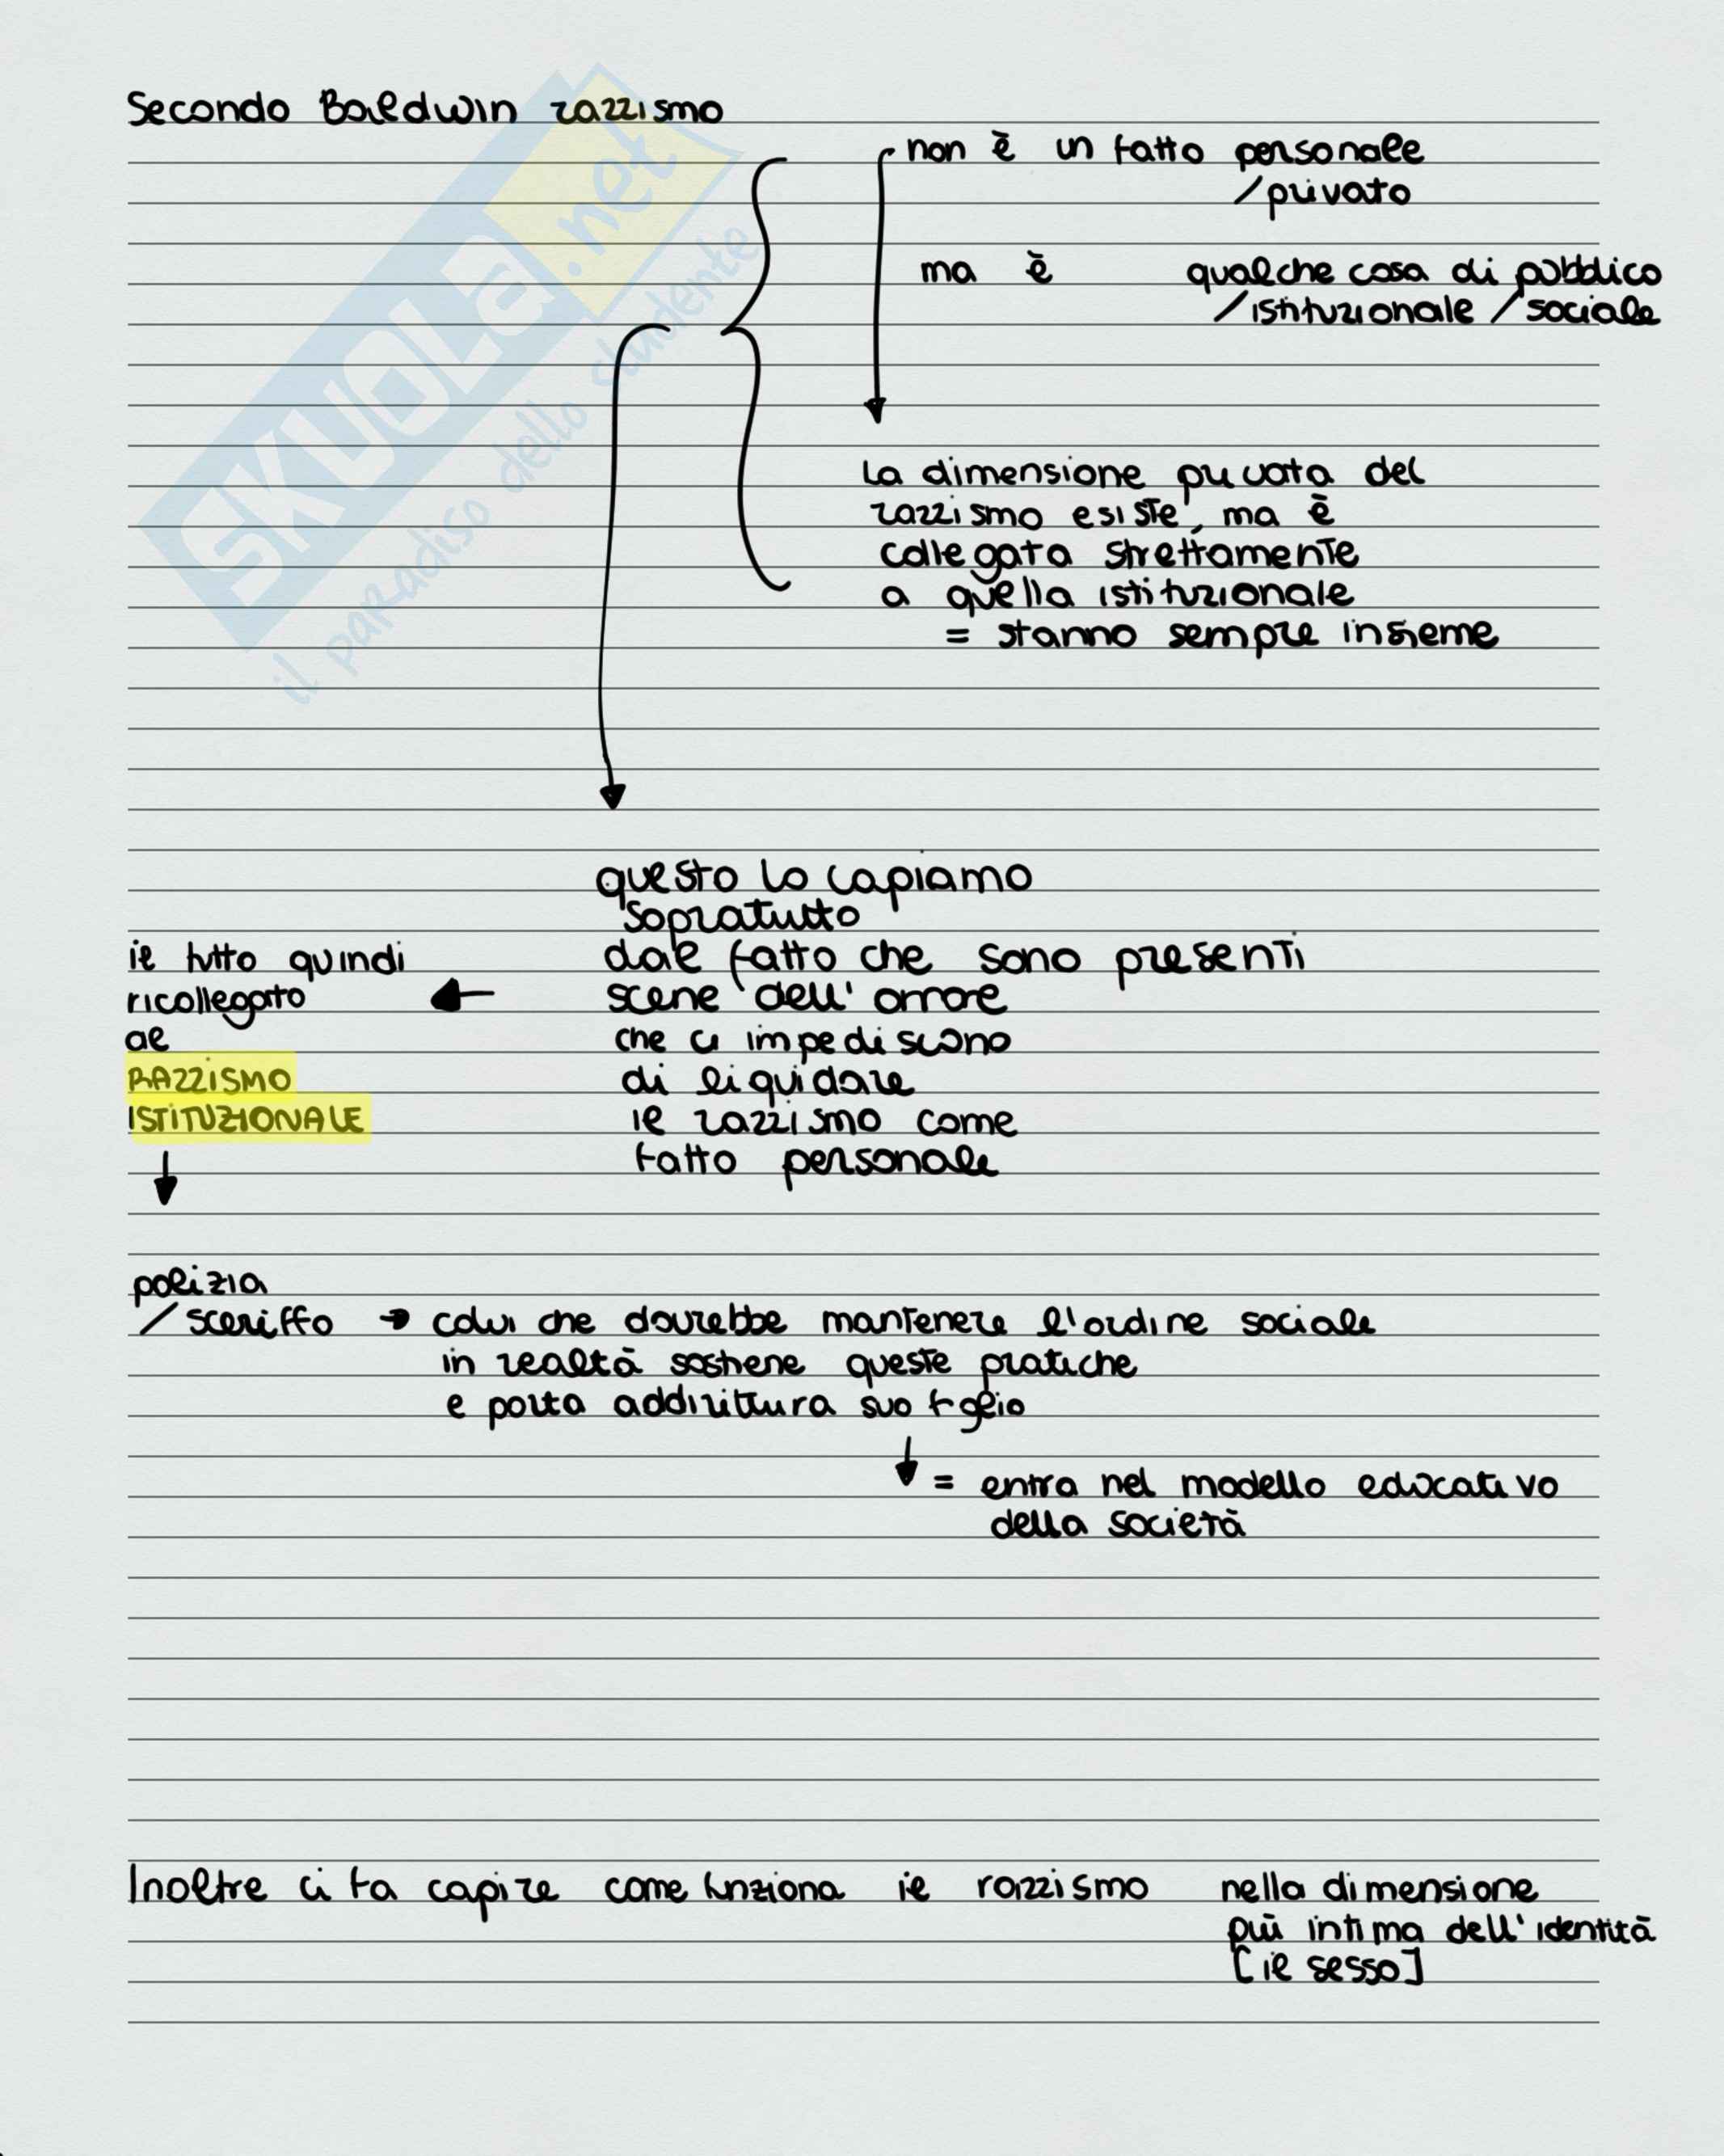 Secondo Baldwin razzismo
non è un fatto personale
/privato
ma è qualche cosa di pubblico
/istituzionale /sociale
La dimensione privata del
razzismo esiste, ma è
collegata strettamente
a quella istituzionale
= stanno sempre insieme
questo lo capiamo
sopratutto
dal fatto che sono presenti
scene dell'orrore
che ci impediscono
di liquidare
il razzismo come
fatto personale
il tutto quindi
ricollegato
al
RAZZISMO
ISTITUZIONALE
polizia
/sceriffo → colui che dovrebbe mantenere l'ordine sociale
in realtà sostiene queste pratiche
e porta addirittura suo figlio
= entra nel modello educativo
della società
Inoltre ci fa capire come funziona il razzismo nella dimensione
più intima dell'identità
[il sesso]
SKUOLa.net
il paradiso dello studente